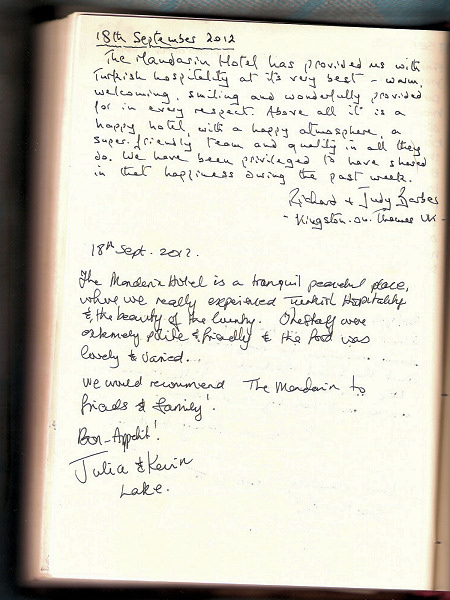 18th September 2012
The Mandarin Hotel has provided us with
Turkish hospitality at it's very best - warm,
welcoming, smiling and wonderfully provided
for in every respect. Above all it is a
happy hotel, with a happy atmosphere, a
super friendly team and quality in all they
do. We have been privileged to have shared
in that happiness during the past week.
Richard & Judy Barber
- Kingston-on-Thames UK -
18th Sept. 2012.
The Mandarin Hotel is a tranquil peaceful place,
where we really experienced Turkish Hospitality
& the beauty of the Country. The staff were
extremely polite & friendly & the food was
lovely & varied...
We would recommend The Mandarin to
friends & family!
Bon-Appetit!
Julia & Kevin
Lake.